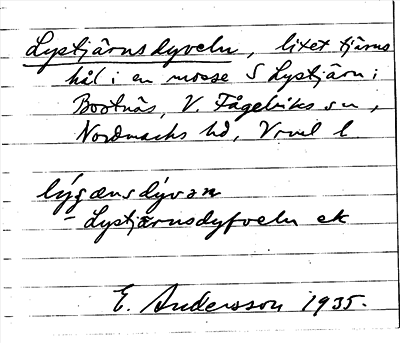 Lystjärnsdyveln, litet tjärns
hål i en mosse S Lystjärn i
Bortnäs, V. Fågelviks sn,
Nordmarks hd, Vrml l
lýgænsdývan
- Lystjærnsdyfveln ek
E. Andersson 1935.